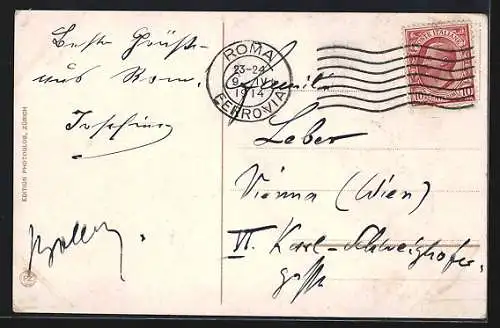 Beste Grüße
aus Rom.
Josefine
EDITION PHOTOGLOB, ZÜRICH
ROMA
23-24
9. IV
1914
FERROVIA
POSTE ITALIANE
10
Familie
Leber
Vienna (Wien)
VI. Karl-Schweighofer-
gasse